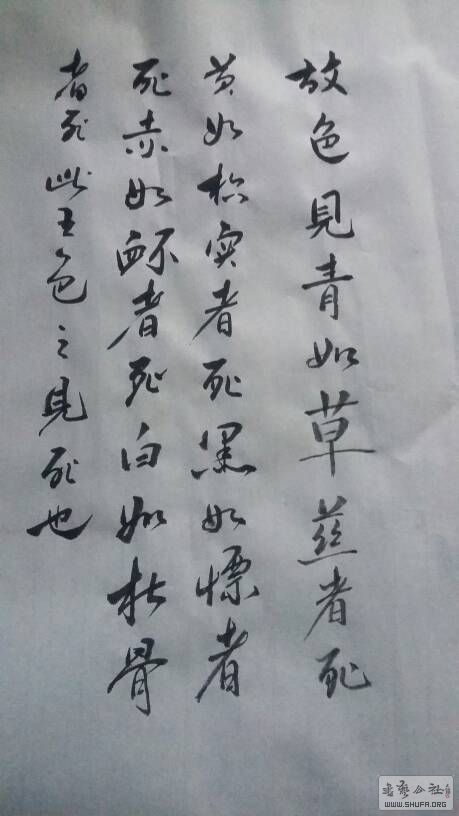 故色見青如草兹者死
黄如枳实者死黑如慓者
死赤如衃者死白如枯骨
者死此五色之見死也
书艺公社
WWW.SHUFA.ORG